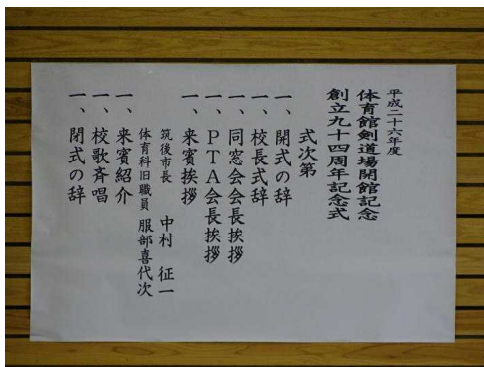 平成二十六年度
体育館剣道場開館記念
創立九十四周年記念式
式次第
一、開式の辞
一、校長式辞
一、同窓会会長挨拶
一、PTA会長挨拶
一、来賓挨拶
筑後市長 中村 征一
体育科旧職員 服部喜代次
一、来賓紹介
一、校歌斉唱
一、閉式の辞